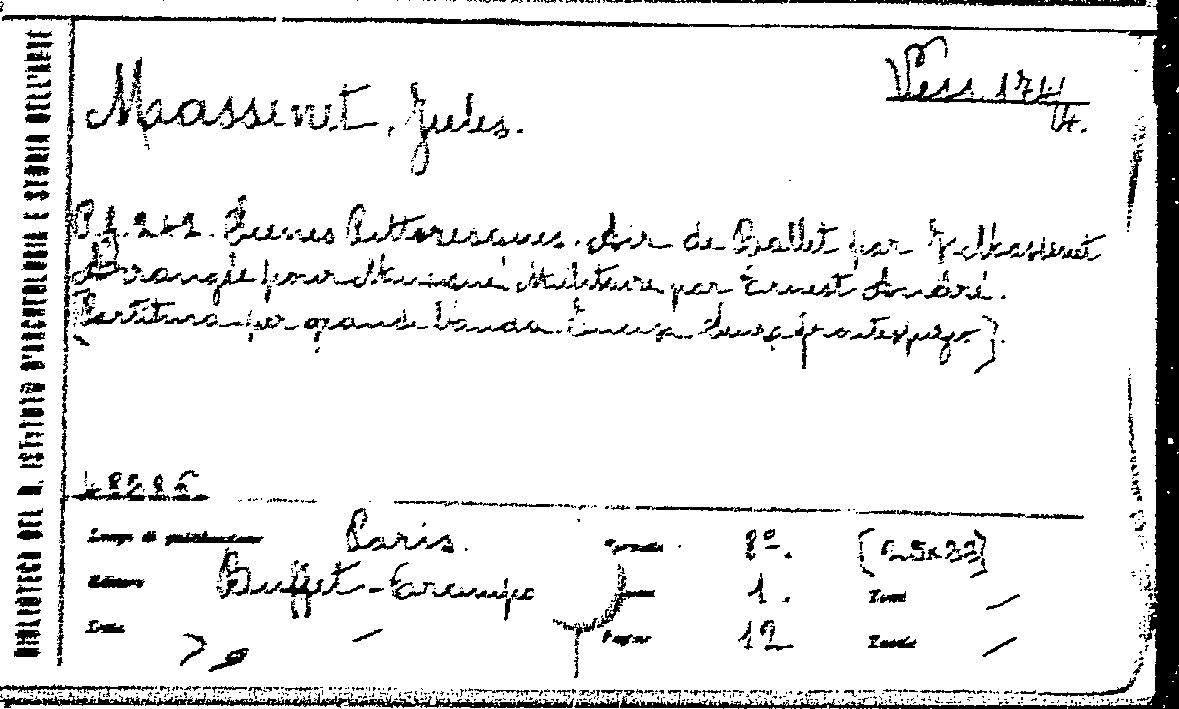 BIBLIOTECA DEL R. ISTITUTO D'ARCHEOLOGIA E STORIA DELL'ARTE
Vess. 174
Massenet, Jules.
Scènes Pittoresques. Air de Ballet par J. Massenet
Arrangée pour Musique Militaire par Ernest André.
[Partitura per grande banda. Senza frontespizio].
Luogo di pubblicazione Paris. 8º. (25x33)
Editore Buffet-Crampo 1. Tomi —
Data — Pagine 12 Tavole —